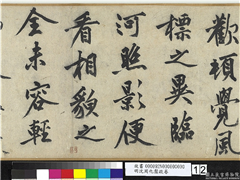 歡頓覺風
標之異臨
河照影便
看相貌之
全未容輕
明沈周化鬚疏卷
12